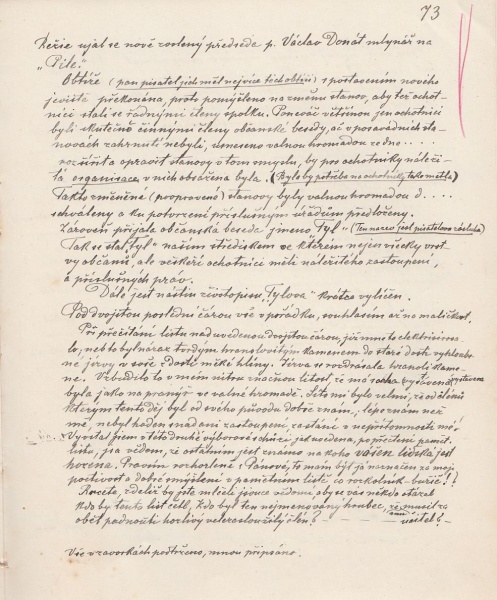 73
Režie ujal se nově zvolený předseda p. Václav Donát mlynář na
„Pile."
Obtíže (pan pisatel jich měl nejvíce těch obtíží) s postavením nového
jeviště překonána, proto pomýšleno na změnu stanov, aby též ochot-
níci stali se řádnými členy spolku. Poněvač většinou jen ochotníci
byli skutečně činnými členy občanské besedy, ač v posavádních sta-
novách zahrnuti nebyli, usneseno valnou hromadou ze dne . . .
opraviti stanovy v tom smyslu, by pro ochotníky náleži-
tá organisace v nich obsažena byla. (Bylo by potřeba na ochotníky
Takto změněné (popravené) stanovy byly valnou hromadou d. . . .
schváleny a ku potvrzení příslušným úřadům předloženy.
Zároveň přijala občanská beseda jméno Tyl" (Ten název jest pisatelova zásluha)
Tak se stal „Tyl" naším střediskem ve kterém nejen všecky vrst-
vy občanů, ale veškeří ochotníci měli náležitého zastoupení,
a příslušných práv.
Dále jest nástin životopisu „Tylova" krátce vylíčen.
Pod dvojitou poslední čárou vše v pořádku, souhlasím až na maličkost.
Při přečítání listu nad uvedenou dvojitou čárou, již mnou to elektrisova-
lo; neb to byl náraz tvrdým hranolovitým kamenem do staré dosti vyhloube-
né jizvy v
Jizva se rozdrásala hranolí kame-
ne. Vzbudilo to v mém nitru značnou lítost, že má
byla jako na pranýř ve valné hromadě. Líto mi bylo velmi, že od členů
kterým tento děj byl od svého původu dobře znám, lépe znám než
mě, nebyl hoden snad ani zastoupení, zastání v nepřítomnosti mé.
Vycítal jsem v této druhé výborové schůzi, jak uvedena, po přečtení památ.
listu, jsa vědom, že ostatním jest známo na koho vášeň lidská jest
hozena. Pravím rozhorleně: Pánové, to mám být já naznačen za moji
poctivost a dobré smýšlení v památním listě co rozkolník-burič!?
kdo by tento list četl, kdo byl ten nejmenovaný houbec, že musil za
oběť padnouti horlivý velezasloužilý člen? — — — učitel?
Vše v závorkách podtrženo, mnou připsáno.